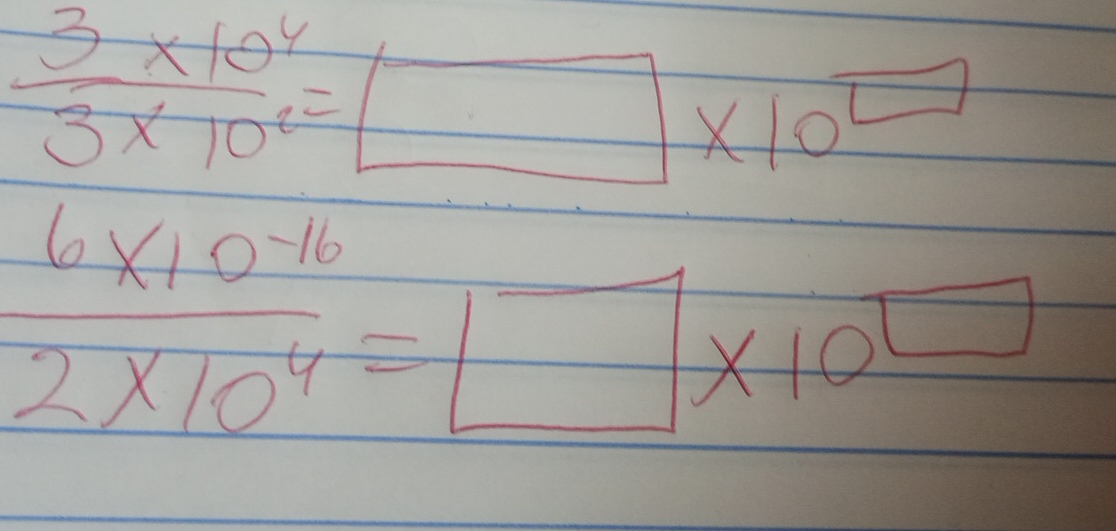 3 × 10⁴
3 × 10² = □ × 10^□
6 × 10⁻¹⁶
2 × 10⁴ = □ × 10^□